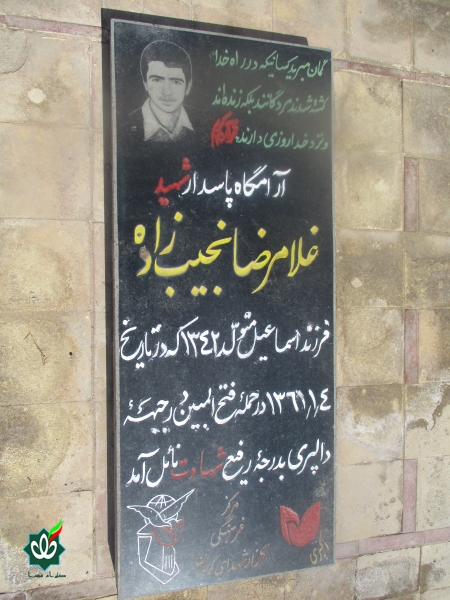 گمان مبرید کسانیکه در راه خدا
کشته شدند مردگانند بلکه زنده اند
و نزد خدا روزی دارند
آرامگاه پاسدار شهید
غلامرضا نجیب زاده
فرزند اسماعیل متولد ۱۳۴۲ که در تاریخ
۱۳۶۱/۱/۴ در حمله فتح المبین در جبهه
دالپری بدرجه رفیع شهادت نائل آمد
مرکز
فرهنگی